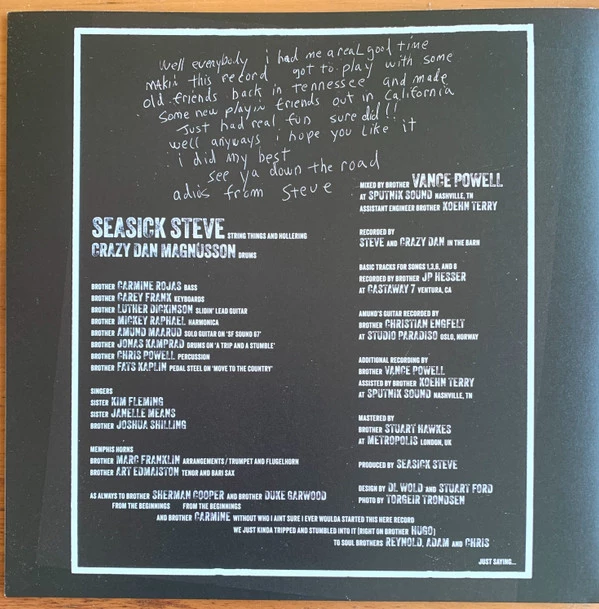 well everybody i had me a real good time
makin this record got to play with some
old friends back in Tennessee and made
some new playin friends out in California
Just had real fun sure did!!
well anyways i hope you like it
i did my best
see ya down the road
adios from Steve
SEASICK STEVE STRING THINGS AND HOLLERING
CRAZY DAN MAGNUSSON DRUMS
BROTHER CARMINE ROJAS BASS
BROTHER CAREY FRANK KEYBOARDS
BROTHER LUTHER DICKINSON SLIDIN' LEAD GUITAR
BROTHER MICKEY RAPHAEL HARMONICA
BROTHER AMUND MAARUD SOLO GUITAR ON 'SF SOUND 67'
BROTHER JONAS KAMPRAD DRUMS ON 'A TRIP AND A STUMBLE'
BROTHER CHRIS POWELL PERCUSSION
BROTHER FATS KAPLIN PEDAL STEEL ON 'MOVE TO THE COUNTRY'
SINGERS
SISTER KIM FLEMING
SISTER JANELLE MEANS
BROTHER JOSHUA SHILLING
MEMPHIS HORNS
BROTHER MARC FRANKLIN ARRANGEMENTS/TRUMPET AND FLUGELHORN
BROTHER ART EDMAISTON TENOR AND BARI SAX
MIXED BY BROTHER VANCE POWELL
AT SPUTNIK SOUND NASHVILLE, TN
ASSISTANT ENGINEER BROTHER KOEHN TERRY
RECORDED BY
STEVE AND CRAZY DAN IN THE BARN
BASIC TRACKS FOR SONGS 1,3,6, AND 8
RECORDED BY BROTHER JP HESSER
AT CASTAWAY 7 VENTURA, CA
AMUND'S GUITAR RECORDED BY
BROTHER CHRISTIAN ENGFELT
AT STUDIO PARADISO OSLO, NORWAY
ADDITIONAL RECORDING BY
BROTHER VANCE POWELL
ASSISTED BY BROTHER KOEHN TERRY
AT SPUTNIK SOUND NASHVILLE, TN
MASTERED BY
BROTHER STUART HAWKES
AT METROPOLIS LONDON, UK
PRODUCED BY SEASICK STEVE
DESIGN BY DL WOLD AND STUART FORD
PHOTO BY TORGEIR TRONDSEN
AS ALWAYS TO BROTHER SHERMAN COOPER AND BROTHER DUKE GARWOOD
FROM THE BEGINNINGS FROM THE BEGINNINGS
AND BROTHER CARMINE WITHOUT WHO I AINT SURE I EVER WOULDA STARTED THIS HERE RECORD
WE JUST KINDA TRIPPED AND STUMBLED INTO IT (RIGHT ON BROTHER HUGO)
TO SOUL BROTHERS REYNOLD, ADAM AND CHRIS
JUST SAYING...